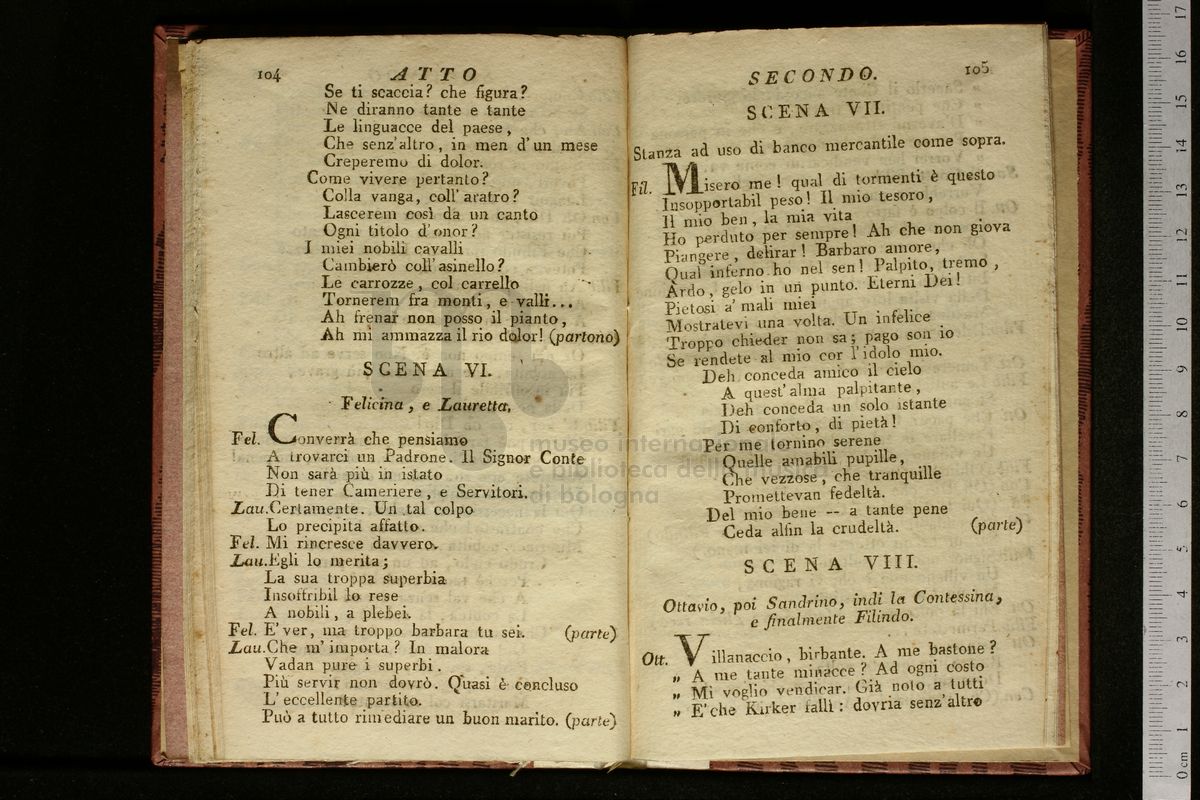 104
ATTO
Se ti scaccia? che figura?
Ne diranno tante e tante
Le linguacce del paese,
Che senz'altro, in men d'un mese
Creperemo di dolor.
Come vivere pertanto?
Colla vanga, coll' aratro?
Lascerem così da un canto
Ogni titolo d'onor?
I miei nobili cavalli
Cambierò coll' asinello?
Le carrozze, col carrello
Tornerem fra monti, e valli...
Ah frenar non posso il pianto,
Ah mi ammazza il rio dolor! (partono)
SCENA VI.
Felicina, e Lauretta,
Fel. Converrà che pensiamo
A trovarci un Padrone. Il Signor Conte
Non sarà più in istato
Di tener Cameriere, e Servitori.
Lau. Certamente. Un tal colpo
Lo precipita affatto.
Fel. Mi rincresce davvero.
Lau. Egli lo merita;
La sua troppa superbia
Insoffribil lo rese
A nobili, a plebei.
Fel. E' ver, ma troppo barbara tu sei. (parte)
Lau. Che m' importa? In malora
Vadan pure i superbi.
Più servir non dovrò. Quasi è concluso
L' eccellente partito.
Può a tutto rimediare un buon marito. (parte)
SECONDO.
105
SCENA VII.
Stanza ad uso di banco mercantile come sopra.
Fil. Misero me! qual di tormenti è questo
Insopportabil peso! Il mio tesoro,
Il mio ben, la mia vita
Ho perduto per sempre! Ah che non giova
Piangere, delirar! Barbaro amore,
Qual inferno ho nel sen! Palpito, tremo,
Ardo, gelo in un punto. Eterni Dei!
Pietosi a' mali miei
Mostratevi una volta. Un infelice
Troppo chieder non sa; pago son io
Se rendete al mio cor l'idolo mio.
Deh conceda amico il cielo
A quest' alma palpitante,
Deh conceda un solo istante
Di conforto, di pietà!
Per me tornino serene
Quelle amabili pupille,
Che vezzose, che tranquille
Promettevan fedeltà.
Del mio bene -- a tante pene
Ceda alfin la crudeltà. (parte)
SCENA VIII.
Ottavio, poi Sandrino, indi la Contessina,
e finalmente Filindo.
Ott. Villanaccio, birbante. A me bastone?
„ A me tante minacce? Ad ogni costo
„ Mi voglio vendicar. Già noto a tutti
„ E' che Kirker fallì: dovria senz'altro
museo internazionale
e biblioteca della musica
di bologna
0 cm 1 2 3 4 5 6 7 8 9 10 11 12 13 14 15 16 17